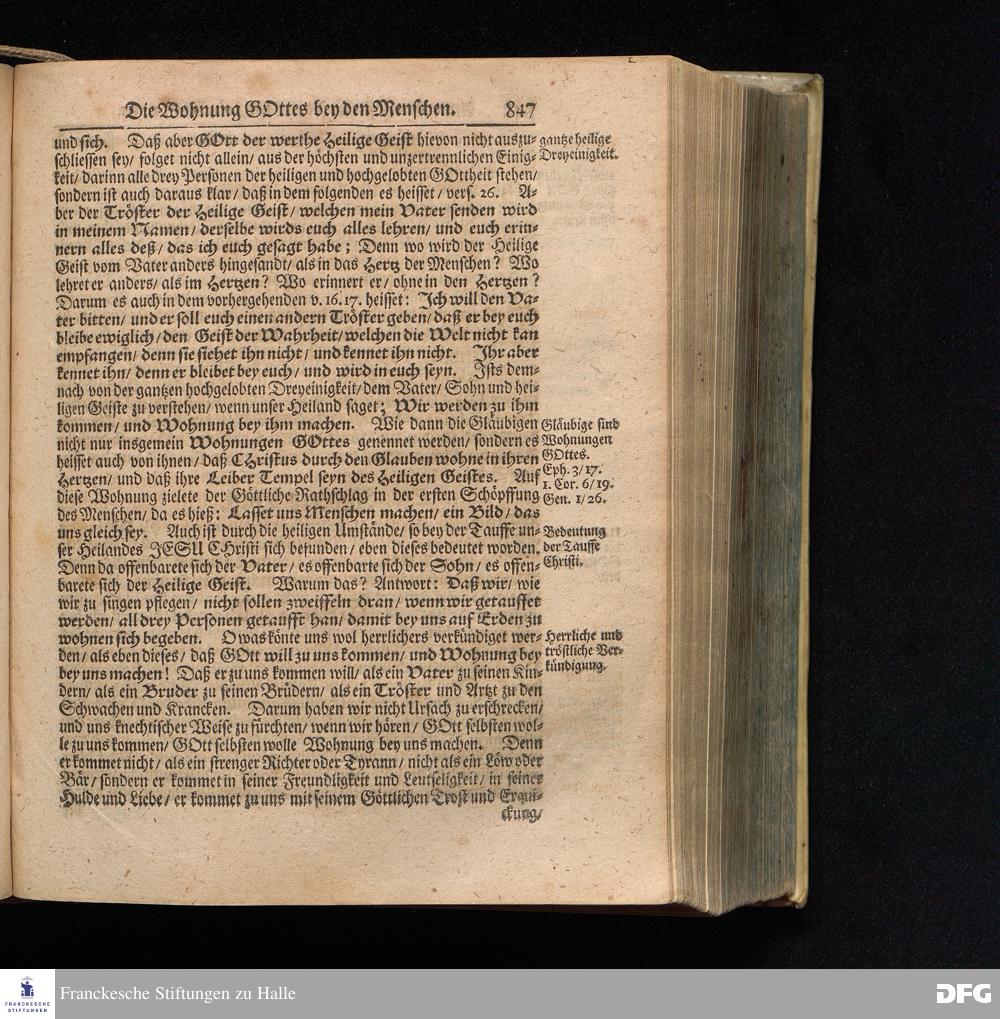 Die Wohnung GOttes bey den Menschen. 847
und sich. Daß aber GOtt der werthe Heilige Geist hievon nicht auszu-
schliessen sey/ folget nicht allein/ aus der höchsten und unzertrennlichen Einig-
keit/ darinn alle drey Personen der heiligen und hochgelobten GOttheit stehen/
sondern ist auch daraus klar/ daß in dem folgenden es heisset/ vers. 26. A-
ber der Tröster der Heilige Geist/ welchen mein Vater senden wird
in meinem Namen/ derselbe wirds euch alles lehren/ und euch erin-
nern alles deß/ das ich euch gesagt habe; Denn wo wird der Heilige
Geist vom Vater anders hingesandt/ als in das Hertz der Menschen? Wo
lehret er anders/ als im Hertzen? Wo erinnert er/ ohne in den Hertzen?
Darum es auch in dem vorhergehenden v. 16. 17. heisset: Ich will den Va-
ter bitten/ und er soll euch einen andern Tröster geben/ daß er bey euch
bleibe ewiglich/ den Geist der Wahrheit/ welchen die Welt nicht kan
empfangen/ denn sie siehet ihn nicht/ und kennet ihn nicht. Ihr aber
kennet ihn/ denn er bleibet bey euch/ und wird in euch seyn. Ists dem-
nach von der gantzen hochgelobten Dreyeinigkeit/ dem Vater/ Sohn und hei-
ligen Geiste zu verstehen/ wenn unser Heiland saget; Wir werden zu ihm
kommen/ und Wohnung bey ihm machen. Wie dann die Gläubigen
nicht nur insgemein Wohnungen GOttes genennet werden/ sondern es
heisset auch von ihnen/ daß CHristus durch den Glauben wohne in ihren
Hertzen/ und daß ihre Leiber Tempel seyn des Heiligen Geistes. Auf
diese Wohnung zielete der Göttliche Rathschlag in der ersten Schöpffung
des Menschen/ da es hieß: Lasset uns Menschen machen/ ein Bild/ das
uns gleich sey. Auch ist durch die heiligen Umstände/ so bey der Tauffe un-
ser Heilandes JESU CHristi sich befunden/ eben dieses bedeutet worden.
Denn da offenbarete sich der Vater/ es offenbarte sich der Sohn/ es offen-
barete sich der Heilige Geist. Warum das? Antwort: Daß wir/ wie
wir zu singen pflegen/ nicht sollen zweiffeln dran/ wenn wir getauffet
werden/ all drey Personen getaufft han/ damit bey uns auf Erden zu
wohnen sich begeben. O was könte uns wol herrlichers verkündiget wer-
den/ als eben dieses/ daß GOtt will zu uns kommen/ und Wohnung bey
bey uns machen! Daß er zu uns kommen will/ als ein Vater zu seinen Kin-
dern/ als ein Bruder zu seinen Brüdern/ als ein Tröster und Artzt zu den
Schwachen und Krancken. Darum haben wir nicht Ursach zu erschrecken/
und uns knechtischer Weise zu fürchten/ wenn wir hören/ GOtt selbsten wol-
le zu uns kommen/ GOtt selbsten wolle Wohnung bey uns machen. Denn
er kommet nicht/ als ein strenger Richter oder Tyrann/ nicht als ein Löw oder
Bär/ sondern er kommet in seiner Freundligkeit und Leutseligkeit/ in seiner
Hulde und Liebe/ er kommet zu uns mit seinem Göttlichen Trost und Erqui-
ckung/
gantze heilige
Dreyeinigkeit.
Gläubige sind
Wohnungen
GOttes.
Eph. 3/17.
1. Cor. 6/19.
Gen. 1/26.
Bedeutung
der Tauffe
Christi.
Herrliche und
tröstliche Ver-
kündigung.
FRANCKESCHE
STIFTUNGEN
Franckesche Stiftungen zu Halle
DFG